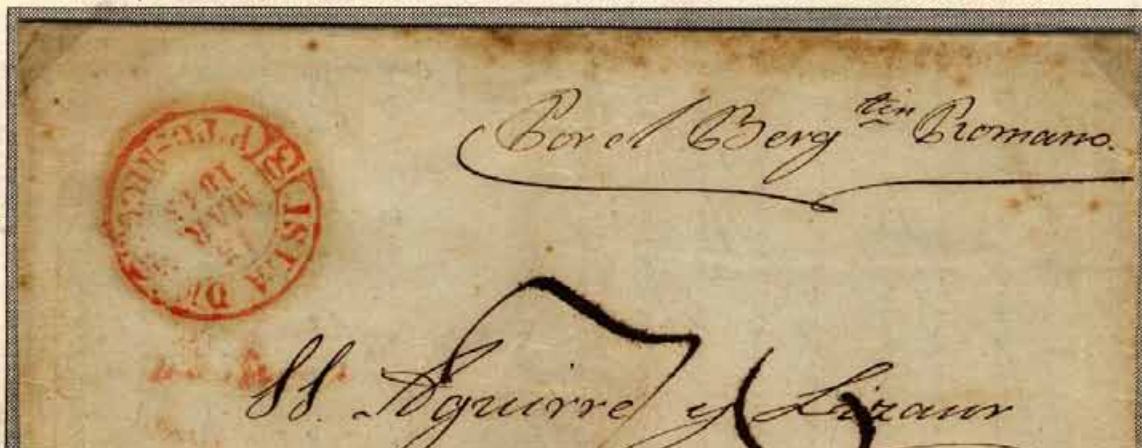 Por el Berg tin Romano.
ISLA
MAY
SS. Aguirre y Lizaur